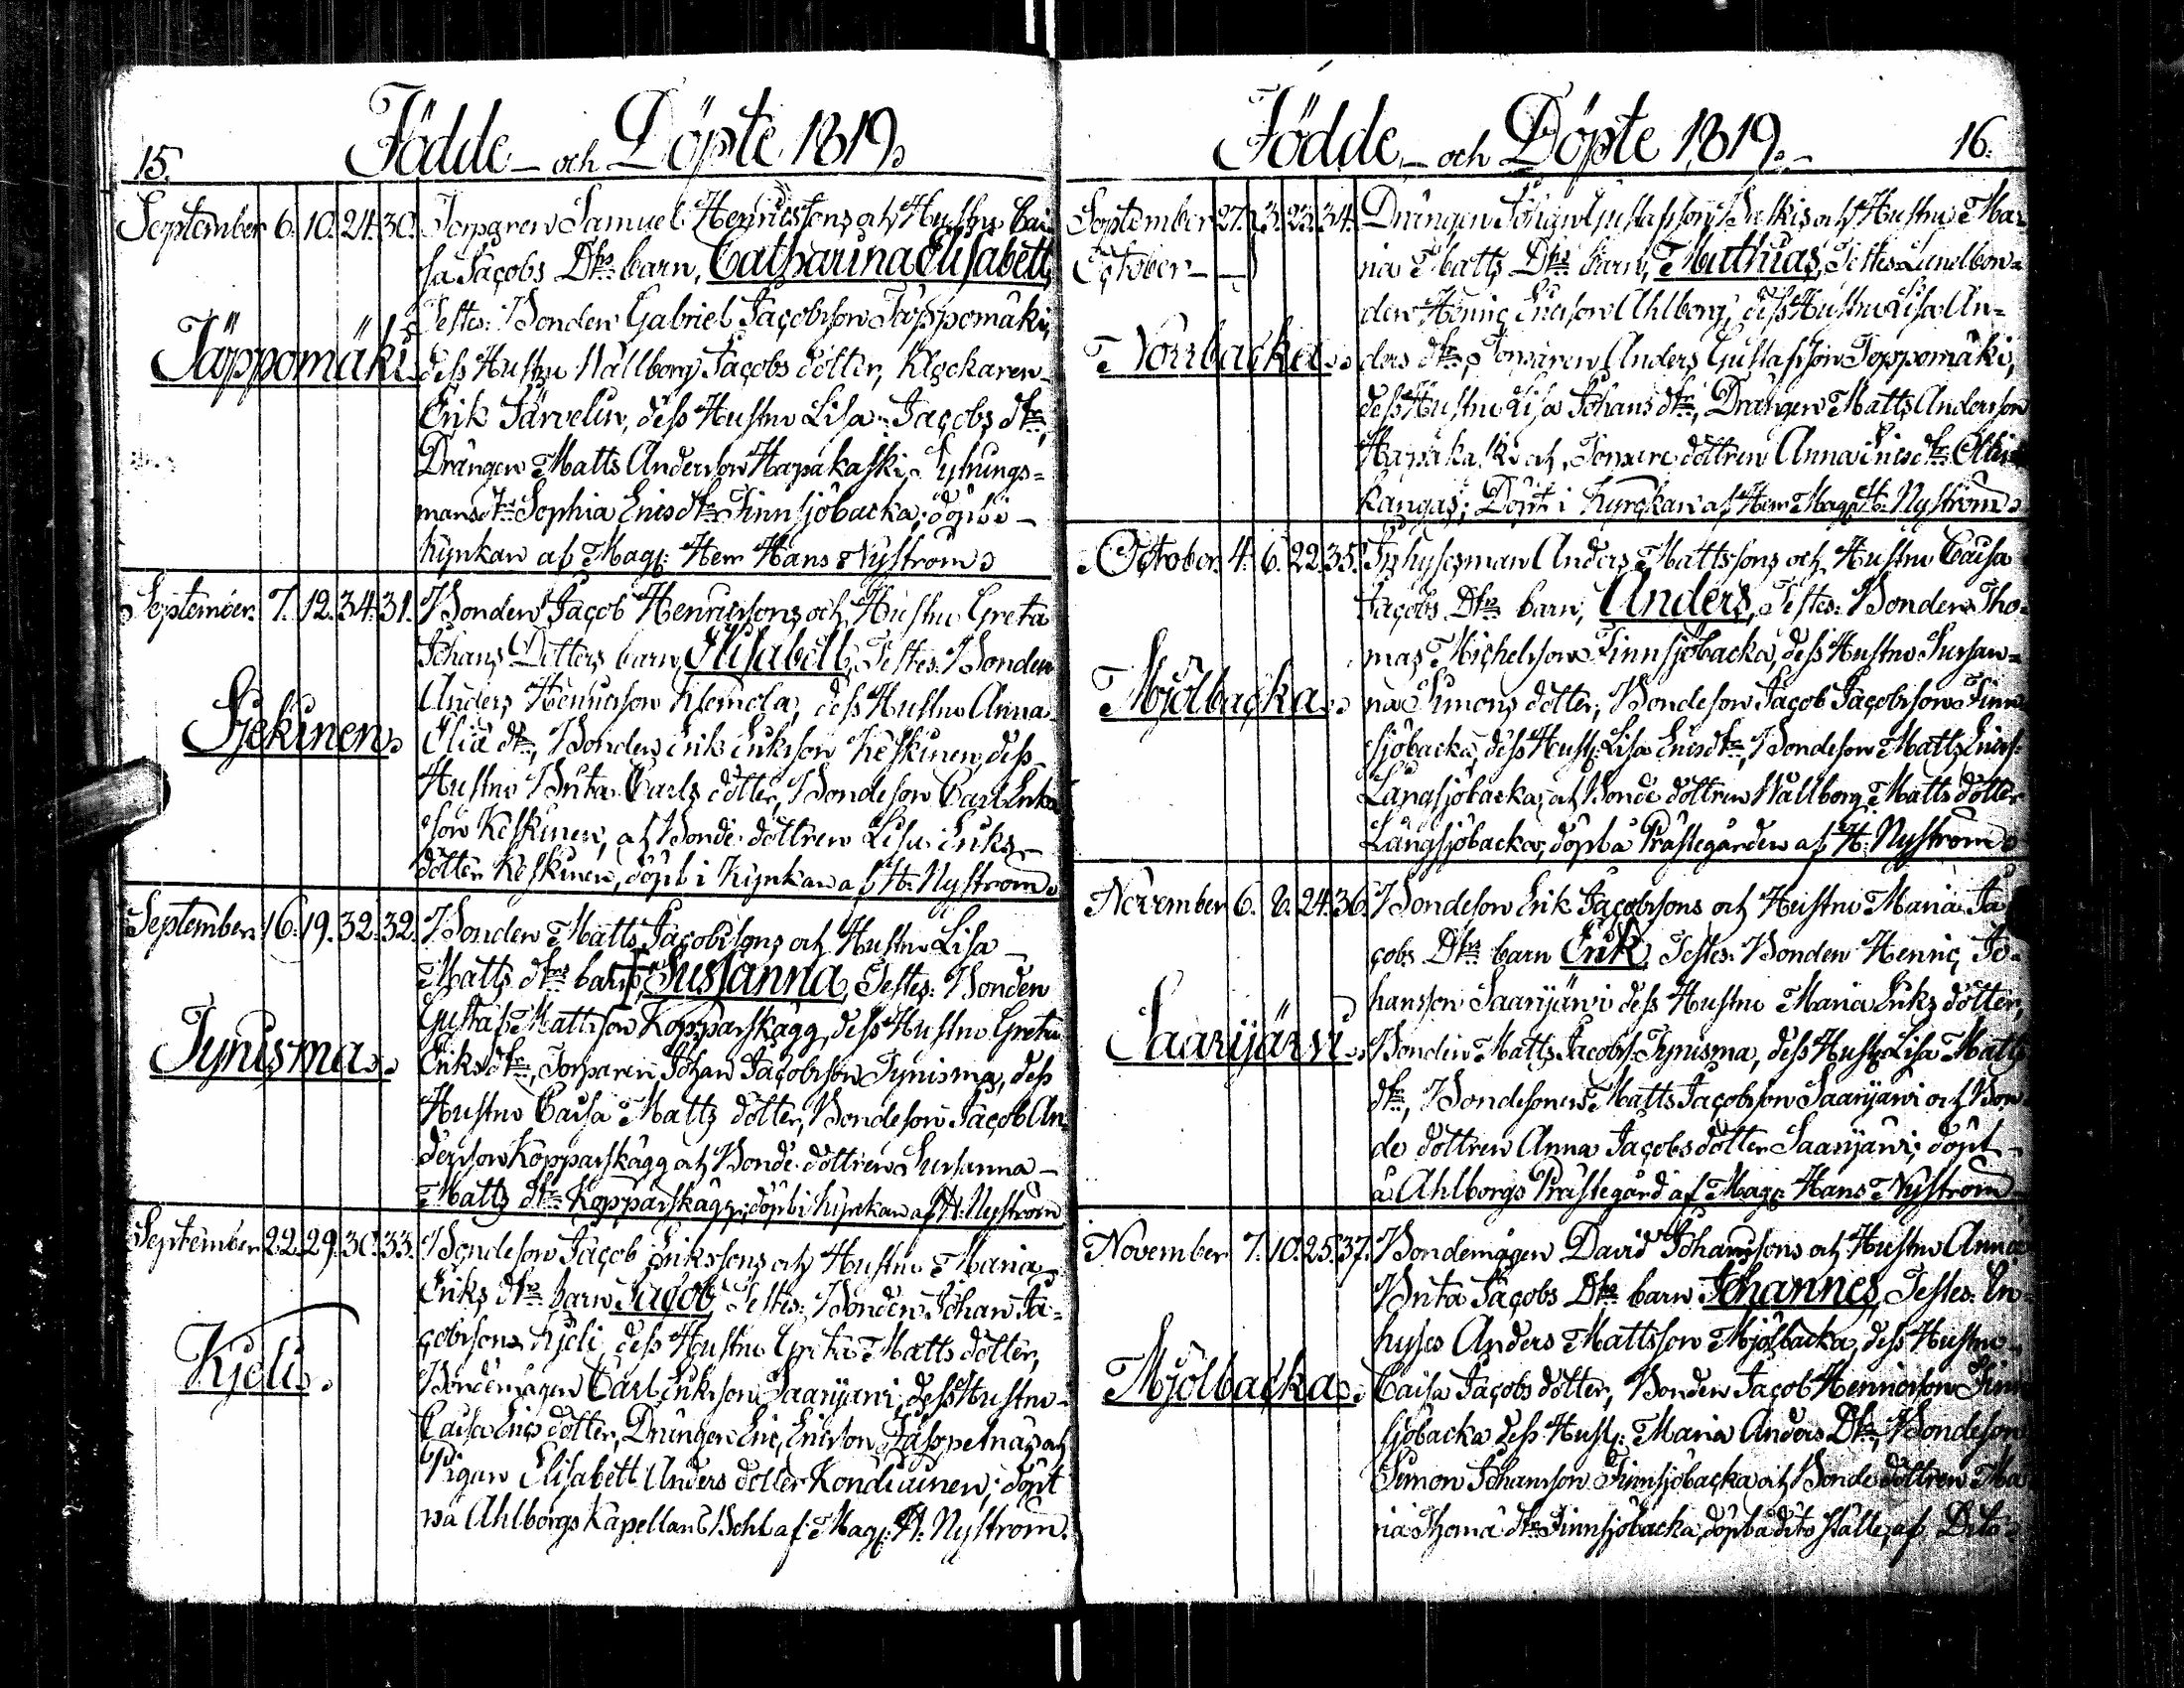 15.
Födde – och Döpte 1819.
September 6. 10. 24. 30. Torparen Samuel Henricssons och Hustru Cai-
sa Jacobs Dtrs barn, Catharina Elisabett,
Testes: Bonden Gabriel Jacobsson Jäppomäki,
Jäppomäki
dess Hustru Wallborg Jacobs dotter, Klockaren
Erik Järvelin, dess Hustru Lisa Jacobs dtr,
Drängen Matts Andersson Hapakaski,
mans dtr Sophia Erics dtr Finnsjöbacka, döpt i
Kyrkan af Mag: Herr Hans Nyström.
September. 7. 12. 34. 31. Bonden Jacob Henricssons och Hustru Greta
Johans Dotters barn, Elisabett, Testes: Bonden
Anders Henricsson Klemola, dess Hustru Anna
Sjekinen.
Eliæ dtr, Bonden Erik Eriksson Keskinen, dess
Hustru Brita Carls dotter, Bondeson Carl Erik-
son Keskinen, och Bonde dottren Lisa Eriks
dotter Keskinen, döpt i Kyrkan af H. Nyström.
September. 16. 19. 32. 32. Bonden Matts Jacobssons och Hustru Lisa
Matts dtrs barn, Susanna, Testes: Bonden
Gustaf Mattsson Kopparskägg, dess Hustru Greta
Tynisma.
Eriks dtr, Torparen Johan Jacobsson Tynisma, dess
Hustru Caisa Matts dotter, Bondeson Jacob An-
dersson Kopparskägg och Bonde dottren Susanna
Matts dtr Kopparskägg, döpt i Kyrkan af H. Nyström
September 22. 29. 30. 33. Bondeson Jacob Erikssons och Hustru Maria
Eriks dtrs barn Jacob, Testes: Bonden Johan Ja-
cobsson Kjeli, dess Hustru Greta Matts dotter,
Kjeli.
Bondemågen Carl Eriksson Saarijärvi, dess Hustru
Caisa Erics dotter, Drängen Eric Ericsson och
Pigan Elisabett Anders dotter; döpt
på Ahlborgs Kapellans Bohl af Mag: H. Nyström.
Födde – och Döpte 1819.
16.
September 27. 3. 23. 34. Drängen Johan Gustafsson och Hustru Ma-
October –
ria Matts Dtrs barn, Matthias, Testes: Lindbon-
den Henric Ericson Ahlborg, dess Hustru Lisa An-
Norrbacka.
ders dtr, Torparen Anders Gustafsson Joppomäki,
dess Hustru Lisa Johans dtr, Drängen Matts Andersson
Hapakaski och Torpare dottren Anna Erics dtr
kangas; Döpt i Kyrckan af Herr Mag: H. Nyström.
October. 4. 6. 22. 35. Inhysesman Anders Mattssons och Hustru Caisa
Jacobs Dtrs barn, Anders, Testes: Bonden Tho-
mas Michelsson Finnsjöbacka, dess Hustru Susan-
Mjölbacka.
na Simons dotter, Bondeson Jacob Jacobsson Finn-
sjöbacka, dess Hust: Lisa Erics dtr, Bondeson Matts Ericss:
Långsjöbacka, och Bonde dottren Wallborg Matts dotter
Långsjöbacka, döpt å Prästegården af H: Nyström.
November 6. 8. 24. 36. Bondeson Erik Jacobssons och Hustru Maria Ja-
cobs Dtrs barn Erik, Testes: Bonden Henric Jo-
hansson Saarijärvi dess Hustru Maria Eriks dotter,
Saarijärvi.
Bonden Matts Jacobss: Tynisma, dess Hust: Lisa Matts
dtr, Bondesonen Matts Jacobsson Saarijärvi och Bon-
de dottren Anna Jacobs dotter Saarijärvi; döpt
å Ahlborgs Prästegård af Mag: Hans Nyström.
November 7. 10. 25. 37. Bondemågen David Johanssons och Hustru Anna
Brita Jacobs Dtrs barn Johannes, Testes: In-
hyses Anders Mattsson Mjölbacka, dess Hustru
Mjölbacka.
Caisa Jacobs dotter, Bonden Jacob Henricsson Finn-
sjöbacka dess Hust: Maria Anders Dtr, Bondeson
Simon Johansson Finnsjöbacka och Bonde dottren Ma-
ria Thomæ dtr Finnsjöbacka, döpt å dito ställe, af Dito.